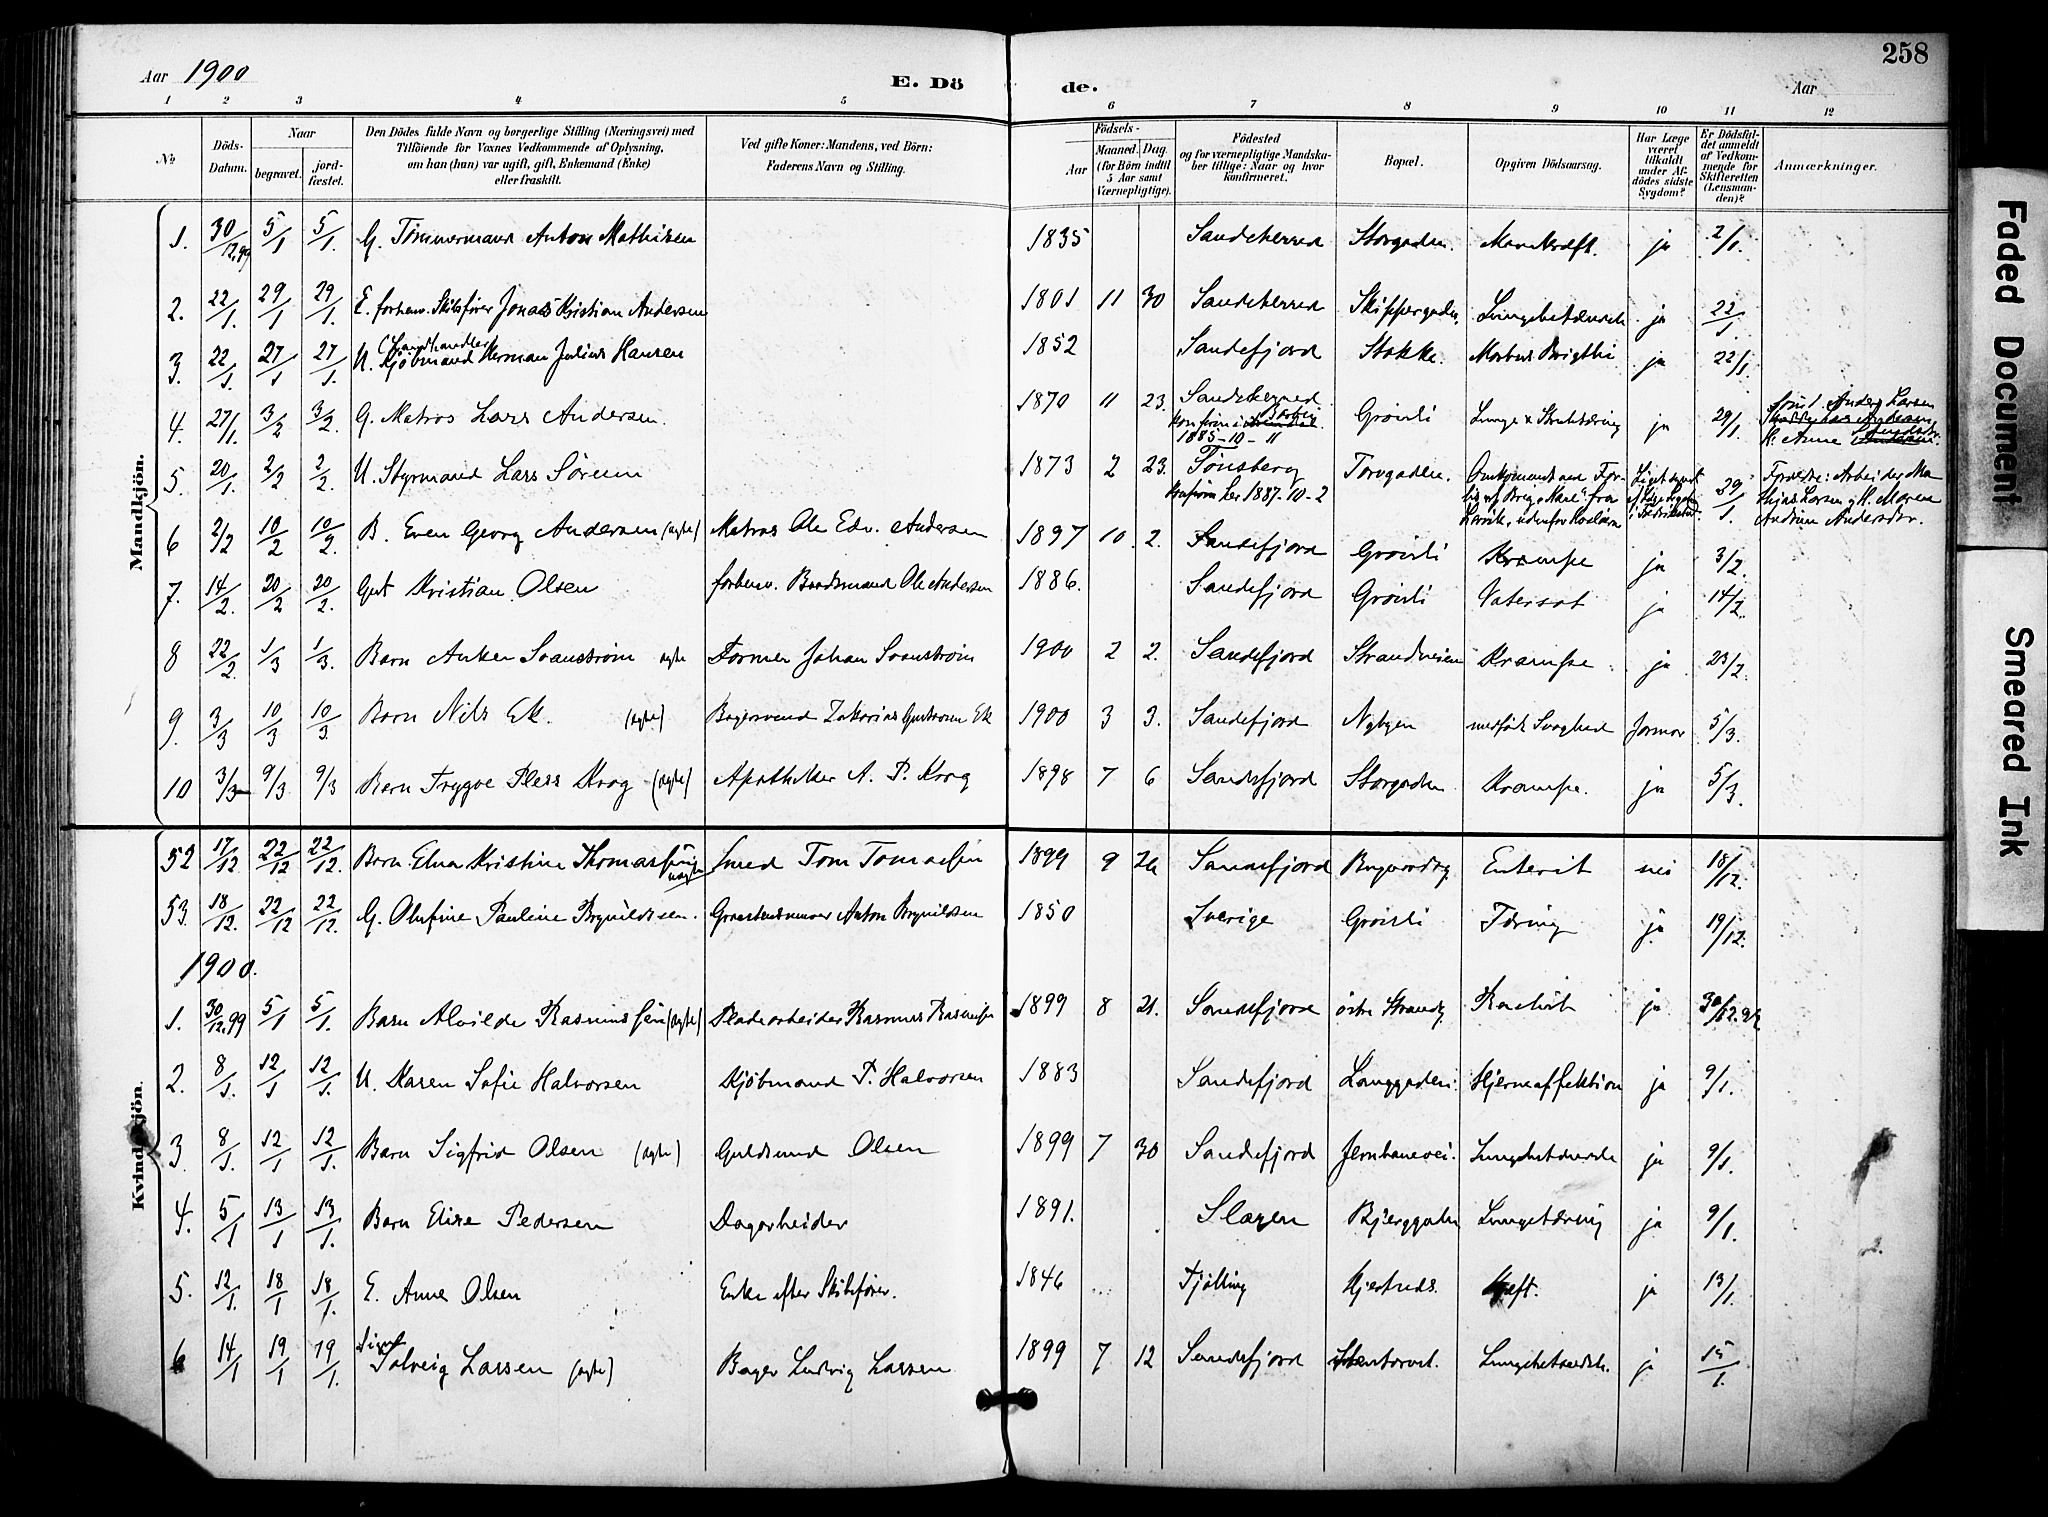 258
Aar 1900
E. Dö de.
Aar
1 2 3 4 5 6 7 8 9 10 11 12
No
Döds-Datum.
Naar begravet. jordfæstet.
Den Dödes fulde Navn og borgerlige Stilling (Næringsvei) med
Tilföiende for Voxnes Vedkommende af Oplysning,
om han (hun) var ugift, gift, Enkemand (Enke)
eller fraskilt.
Ved gifte Koner: Mandens, ved Börn:
Faderens Navn og Stilling.
Födsels-
Aar Maaned. Dag
(for Börn indtil
5 Aar samt
Værnepligtige).
Födested
og for værnepligtige Mandska-
ber tillige: Naar og hvor
konfirmeret.
Bopæl.
Opgiven Dödsaarsag.
Har Læge
været
tilkaldt
under Af-
dödes sidste
Sygdom?
Er Dödsfal-
det anmeldt
af Vedkom-
mende for
Skifteretten
(Lensman-
den)?
Anmærkninger.
Mandkjön.
1. 30/12.99 5/1 5/1. G. Tömmermand Anton Mathisen 1835 Sandeherred Storgaden. Mavekræft. ja 2/1.
2. 22/1. 29/1 29/1. E. forhenv. Skibsfører Jonas Kristian Andersen 1801 11 30 Sandeherred Skippergaden. Lungebetændelse ja 22/1.
(Landhandler
3. 22/1. 27/1 27/1. U. Kjöbmand Herman Julius Hansen 1852 Sandefjord Stokke. Morbus Brigthii ja 22/1.
4. 27/1. 3/2 3/2 G. Matros Lars Andersen. 1870 11 23. Sandeherred Grönli Lunge & Strubetæring ja 29/1. Anders Larsen
1885-10-11
5. 20/1. 2/2 2/2. U. Styrmand Lars Sörensen 1873 2 23. Tönsberg Torvgaden. 29/1. Forældre: Arbeider Ma
1887-10-2
thias Larsen & H. Maren
Andrine Andersdtr.
6 2/2 10/2 10/2. B. Even Georg Andersen (ægte) Matros Ole Edv. Andersen 1897 10. 2. Sandefjord Grönli Krampe ja 3/2.
7. 14/2. 20/2 20/2. Gut Kristian Olsen forhenv. Baadsmand Ole Andersen 1886. Sandefjord Grönli Vatersot ja 14/2
8 22/2. 1/3 1/3. Barn Anker Svanström ægte Former Johan Svanström 1900 2 2. Sandefjord Strandveien Krampe. ja 23/2.
9. 3/3 10/3 10/3. Barn Nils Ek. (ægte) Bagersvend Zakarias Gustavsen Ek 1900 3 3. Sandefjord Nybyen medfödt Svaghed Jormor 5/3.
10 3/3 9/3 9/3 Barn Trygve Pless Krog (ægte) Apotheker A. P. Krog 1898 7 6 Sandefjord Storgaden Krampe. ja 5/3.
Kvindekjön.
52 17/12. 22/12 22/12. Barn Elna Kristine Thomassen uægte Smed Tom Tomassen 1899 9 26 Sandefjord Enterit nei 18/12.
53. 18/12. 22/12 22/12. G. Olufine Pauline Brynildsen. Anton Brynildsen 1850 Sverige Grönli Tæring ja. 19/12.
1900.
1. 30/12.99 5/1 5/1. Barn Alvilde Rasmussen (ægte) Pladearbeider Rasmus Rasmussen 1899 8 21. Sandefjord östre Strandg. Rachitis ja 30/12.99
2. 8/1. 12/1 12/1. U. Karen Sofie Halvorsen Kjöbmand P. Halvorsen 1883 Sandefjord Langgaden. Hjerneaffektion ja 9/1.
3. 8/1. 12/1 12/1. Barn Sigfrid Olsen (ægte) Guldsmed Olsen 1899 7 30 Sandefjord Jernbanevei. Lungebetændelse ja 9/1.
4. 5/1 13/1 13/1. Barn Elise Pedersen Dagarbeider 1891. Slagen Bjerggaden Lungetæring ja 9/1.
5. 12/1. 18/1 18/1. E. Anne Olsen Enke efter Skibsförer. 1846 Tjölling Kræft. ja 13/1.
6 14/1 19/1 19/1. Solveig Larsen (ægte) Bager Ludvig Larsen 1899 7 12 Sandefjord Lungebetændelse. ja 15/1.
Faded Document
Smeared Ink